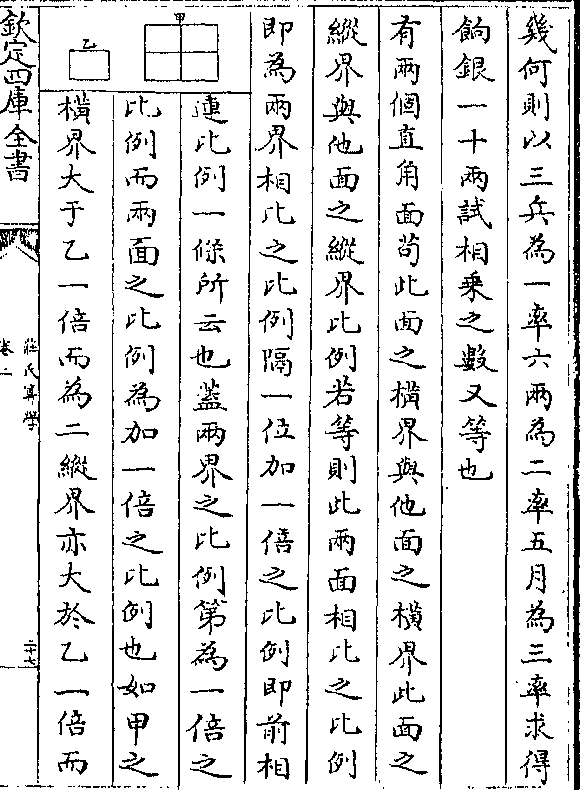 幾何則以三兵為一率六兩為二率五月為三率求得
餉銀一十兩試相乘之數又等也
有兩個直角面茍此面之橫界與他面之橫界此面之
縱界與他面之縱界比例若等則此兩面相比之比例
即為兩界相比之比例隔一位加一倍之比例即前相
連比例一條所云也蓋兩界之比例第為一倍之
比例而兩面之比例為加一倍之比例也如甲之
橫界大于乙一倍而為二縱界亦大於乙一倍而
甲
乙
欽定四庫全書
莊氏算學
卷二
二十七